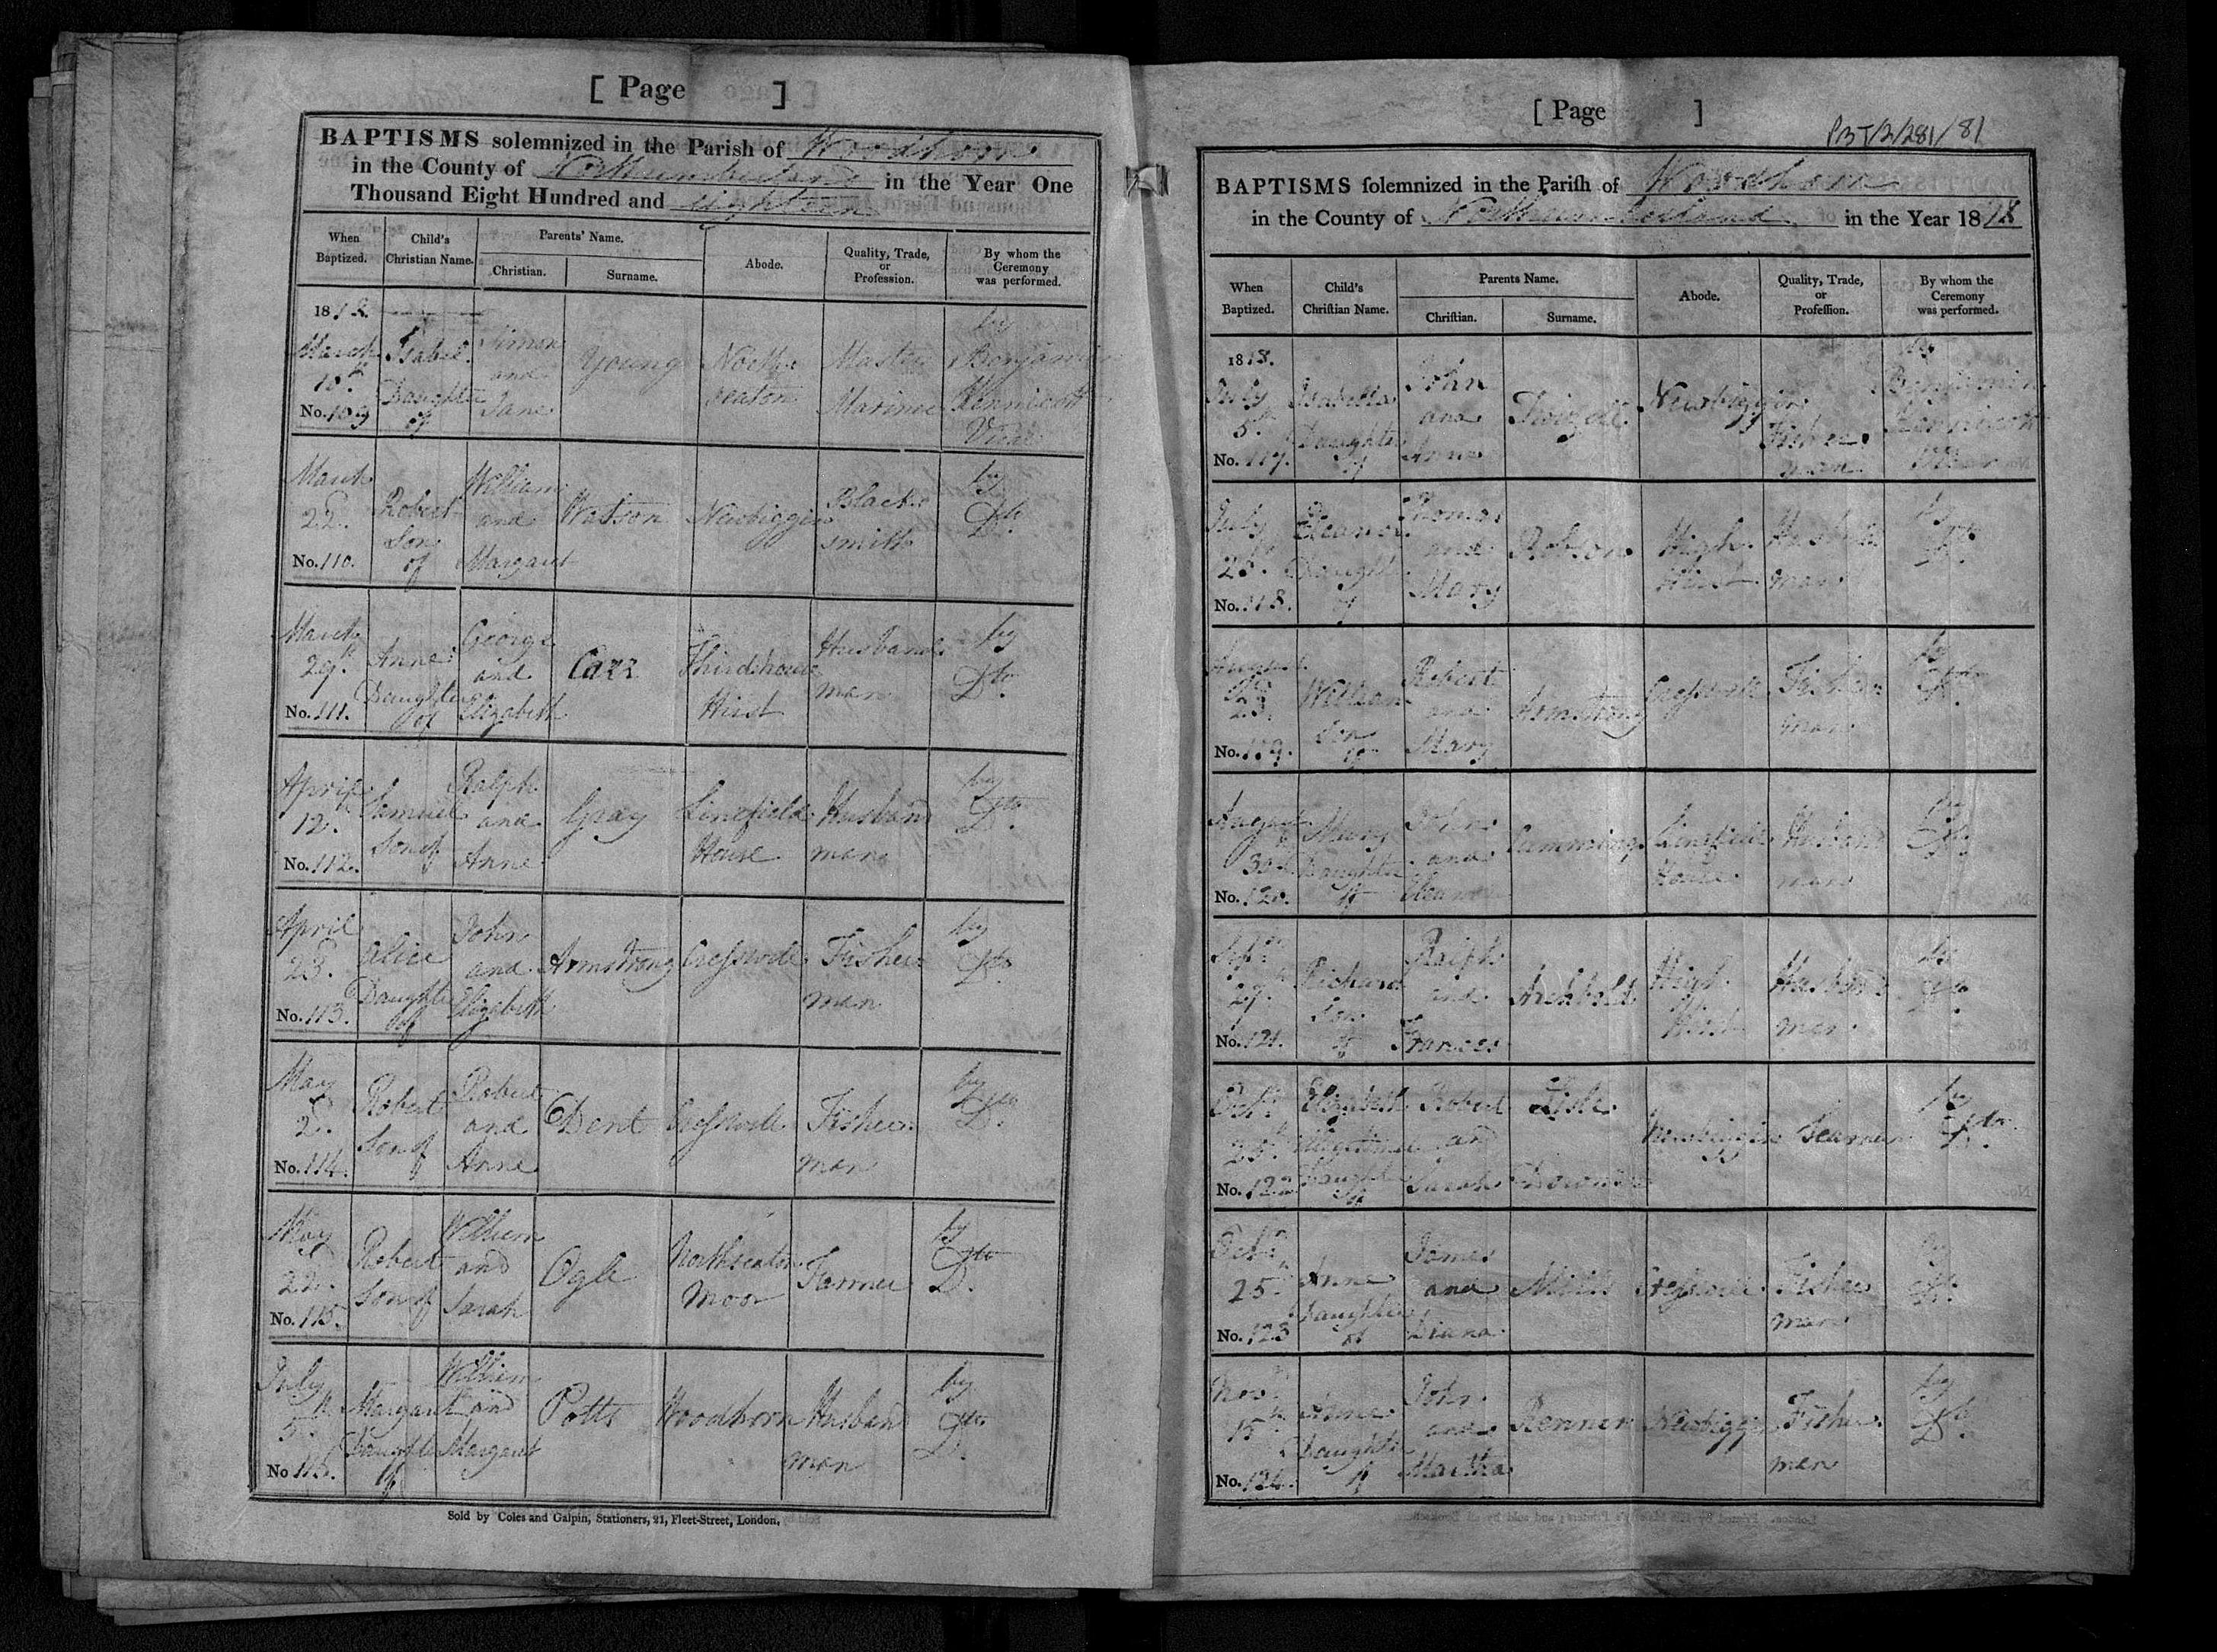 [ Page ]
BAPTISMS solemnized in the Parish of Woodhorn
in the County of Northumberland in the Year One
Thousand Eight Hundred and eighteen
When Baptized. Child's Christian Name. Parents' Name. Christian. Surname. Abode. Quality, Trade, or Profession. By whom the Ceremony was performed.
1818.
March 15th Isabel Daughter of Simon and Jane Young North seaton Master Marine by Benjamin Kennicott Vicar
No. 109
March 22d Robert Son of William and Margaret Watson Newbiggin Black smith by Dto
No. 110.
March 29th Anne Daughter of George and Elizabeth Carr Thirdhouse Hirst Husband man by Dto
No. 111.
April 12th Samuel Son of Ralph and Anne Gray Linefield House Husband man by Dto
No. 112.
April 23d Alice Daughter of John and Elizabeth Armstrong Cresswell Fisher man by Dto
No. 113.
May 2d Robert Son of Robert and Anne Dent Cresswell Fisher man by Dto
No. 114.
May 22d Robert Son of William and Sarah Ogle Northseaton Moor Farmer by Dto
No. 115.
July 5th Margaret Daughter of William and Margaret Potts Woodhorn Husband man by Dto
No. 116.
Sold by Coles and Galpin, Stationers, 21, Fleet-Street, London,
[ Page ]
PBT/2/281/81
BAPTISMS solemnized in the Parish of Woodhorn
in the County of Northumberland in the Year 1818
When Baptized. Child's Christian Name. Parents Name. Christian. Surname. Abode. Quality, Trade, or Profession. By whom the Ceremony was performed.
1818.
July 5th Isabella Daughter of John and Anne Twizell Newbiggin Fisher man by Benjamin Kennicott Vicar
No. 117.
July 26th Eleanor Daughter of Thomas and Mary Robson High Hirst Husband man by Dto
No. 118.
August 23d William Son of Robert and Mary Armstrong Cresswell Fisher man by Dto
No. 119.
August 30th Mary Daughter of John and Eleanor Cumming Linefield House Husband man by Dto
No. 120.
Sepr 27th Richard Son of Ralph and Frances Archbold High Hirst Husband man by Dto
No. 121.
Octr Elizabeth Daughter of Robert and Sarah Lisle Newbiggin Seaman by Dto
No. 122
Octr 25th Anne Daughter of James and Diana Mills Cresswell Fisher man by Dto
No. 123
Novr 15th Anne Daughter of John and Martha Renner Newbiggin Fisher man by Dto
No. 124.